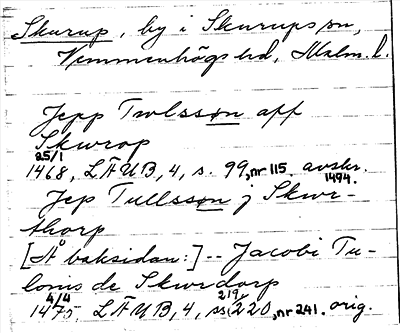 Skurup, by i Skurups sn,
Vemmenhögs hd, Malm. l.
Jepp Twlsson aff
Skwrop
25/1
1468, LÄUB, 4, s. 99, nr 115. avskr.
1494.
Jep Tullsson j Skwr-
thorp
[Å baksidan:] -- Jacobi Tu-
loms de Skwrdorp
4/4
1475. LÄUB, 4, ss. 219, 220, nr 241. orig.